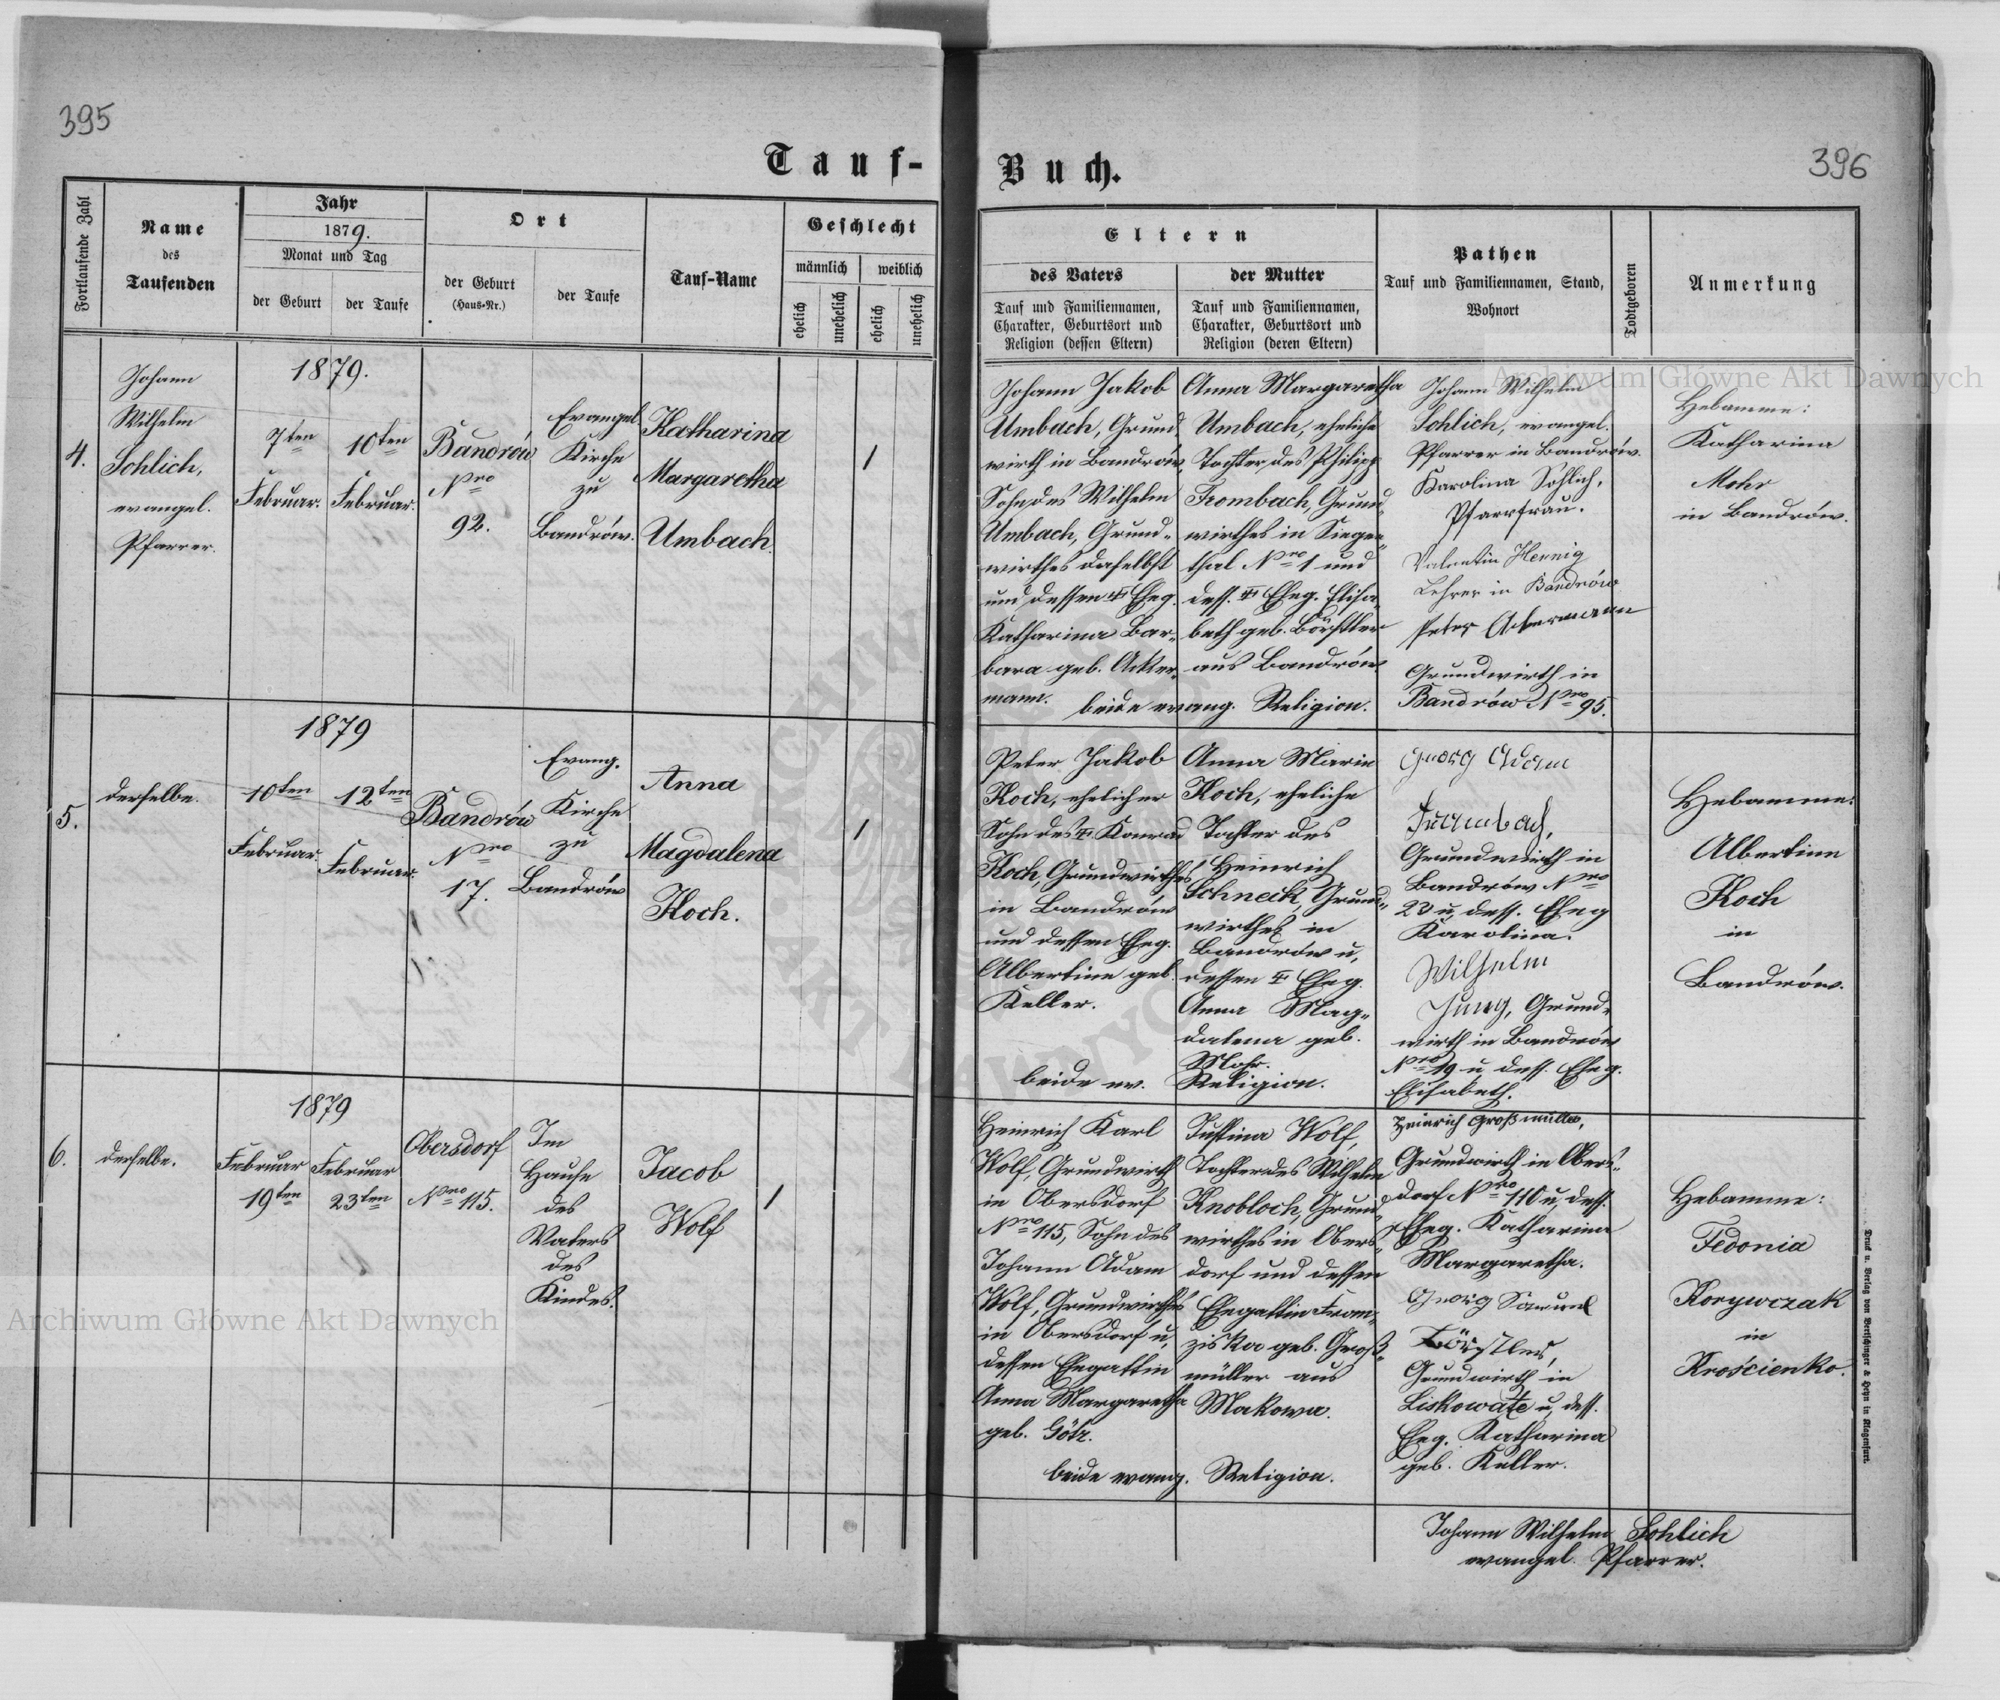 395
Tauf-
Fortlaufende Zahl
Name
des
Taufenden
Jahr
1879.
Monat und Tag
der Geburt
der Taufe
Ort
der Geburt
(Haus-Nr.)
der Taufe
Tauf-Name
Geschlecht
männlich
weiblich
ehelich
unehelich
ehelich
unehelich
4.
Johann
Wilhelm
Sohlich,
evangel.
Pfarrer.
1879.
7ten
Februar.
10ten
Februar.
Bandrów
Nro
92.
Evangel.
Kirche
zu
Bandrów.
Katharina
Margaretha
Umbach.
1
5.
derselbe.
1879
10ten
Februar
12ten
Februar.
Bandrów
Nro
17.
Evang.
Kirche
zu
Bandrów
Anna
Magdalena
Koch.
1
6.
derselbe.
1879
Februar
19ten
Februar
23ten
Obersdorf
Nro 115.
Im
Hause
des
Vaters
des
Kindes.
Jacob
Wolf
1
Buch.
396
Eltern
des Vaters
Tauf und Familiennamen,
Charakter, Geburtsort und
Religion (dessen Eltern)
der Mutter
Tauf und Familiennamen,
Charakter, Geburtsort und
Religion (deren Eltern)
Pathen
Tauf und Familiennamen, Stand,
Wohnort
Todtgeboren
Anmerkung
Johann Jakob
Umbach, Grund
wirth in Bandrów,
Sohn des Wilhelm
Umbach, Grund-
wirthes daselbst
und dessen Eheg.
Katharina Bar-
bara geb. Acker-
mann.
Anna Margaretha
Umbach, eheliche
Tochter des Philipp
Trombach, Grund-
wirthes in Siegen-
thal Nro 1 und
dess. Eheg. Elisa-
beth geb. Börstler
aus Bandrów.
beide evang. Religion.
Johann Wilhelm
Sohlich, evangel.
Pfarrer in Bandrów.
Karolina Sohlich,
Pfarrfrau.
Valentin Hennig
Lehrer in Bandrów
Peter Ackermann
Grundwirth in
Bandrów Nro 95.
Hebamme:
Katharina
Mohr
in Bandrów.
Peter Jakob
Koch, ehelicher
Sohn des Konrad
Koch, Grundwirthes
in Bandrów
und dessen Eheg.
Albertine geb.
Keller.
Anna Maria
Koch, eheliche
Tochter des
Heinrich
Schneik, Grund-
wirthes in
Bandrów u.
dessen Eheg.
Anna Mag-
dalena geb.
Mohr.
beide ev. Religion.
Georg Adam
Trumbach,
Grundwirth in
Bandrów Nro
23 u. dess. Eheg
Karolina.
Wilhelm
Jung, Grund-
wirth in Bandrów
Nro 19 u. dess. Eheg.
Elisabeth.
Hebamme:
Albertine
Koch
in
Bandrów.
Heinrich Karl
Wolf, Grundwirth
in Obersdorf
Nro 115, Sohn des
Johann Adam
Wolf, Grundwirthes
in Obersdorf u.
dessen Ehegattin
Anna Margaretha
geb. Götz.
Justina Wolf,
Tochter des Wilhelm
Knobloch, Grund-
wirthes in Obers-
dorf und dessen
Ehegattin Fran-
ziska geb. Groß-
müller aus
Makowa.
beide evang. Religion.
Heinrich Großmüller,
Grundwirth in Obers-
dorf Nro 110 u. dess.
Eheg. Katharina
Margaretha.
Georg Samuel
Börstler,
Grundwirth in
Liskowate u. dess.
Eheg. Katharina
geb. Keller.
Hebamme:
Fedonia
Korywczak
in
Krościenko.
Johann Wilhelm Sohlich
evangel. Pfarrer.
Druk u. Verlag von Bertschinger & Heyn in Klagenfurt.
Archiwum Główne Akt Dawnych
Archiwum Główne Akt Dawnych